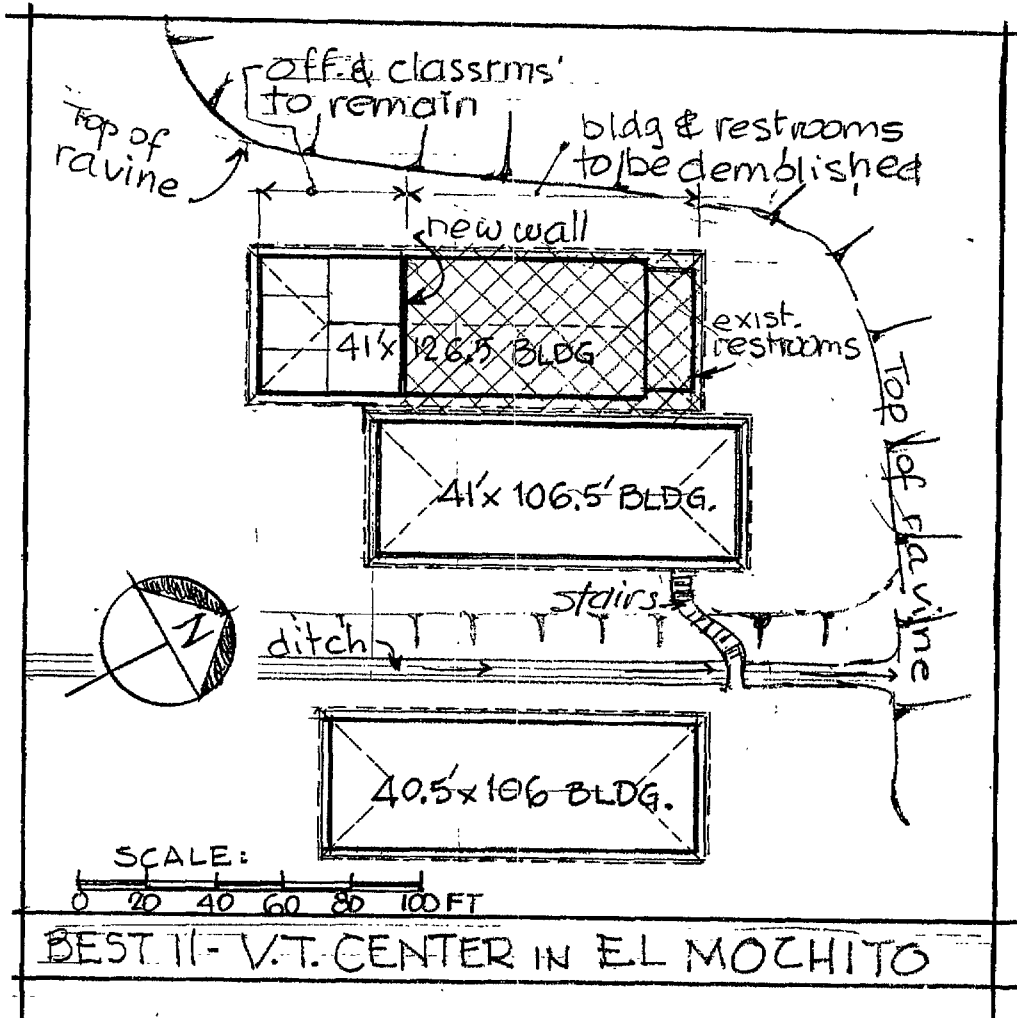 off. & classrms'
to remain
Top of
ravine
bldg & restrooms
to be demolished
new wall
exist.
restrooms
41'x 126.5 BLDG
Top of ravine
41'x 106.5' BLDG.
stairs
N
ditch
40.5'x 106 BLDG.
SCALE:
0 20 40 60 80 100 FT
BEST II - V.T. CENTER IN EL MOCHITO